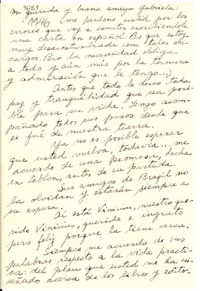 Mi querida y buena amiga Gabriela:
Me perdone usted por los
errores que voy a cometer escribiendole
una carta en español. Es que estoy
muy desacostumbrada con tales
cargos. Pero la necesidad obliga
a todo y aún más por la ternura
y admiración que le tengo...
Antes que todo le deseo toda
paz y tranquilidad que sea posible
para su vida. Tengo acom-
pañado todos sus pasos desde que
se fué de nuestra tierra.
Ya no es posible esperar
que usted vuelva, todavía... me
acuerdo de una promesa, hecha
en Leblon, antes de su partida.
Sus amigos de Brazil no
la olvidan y estarán siempre a
su espera.
Si este Vinicius, que-
rido Vinicius, querido e ingrato
pero feliz porque la tiene cerca.
Siempre me acuerdo de sus
palabras respecto a la vida practi-
ca: del plan que usted me ha in-
sinuado acerca de los libros y editor.